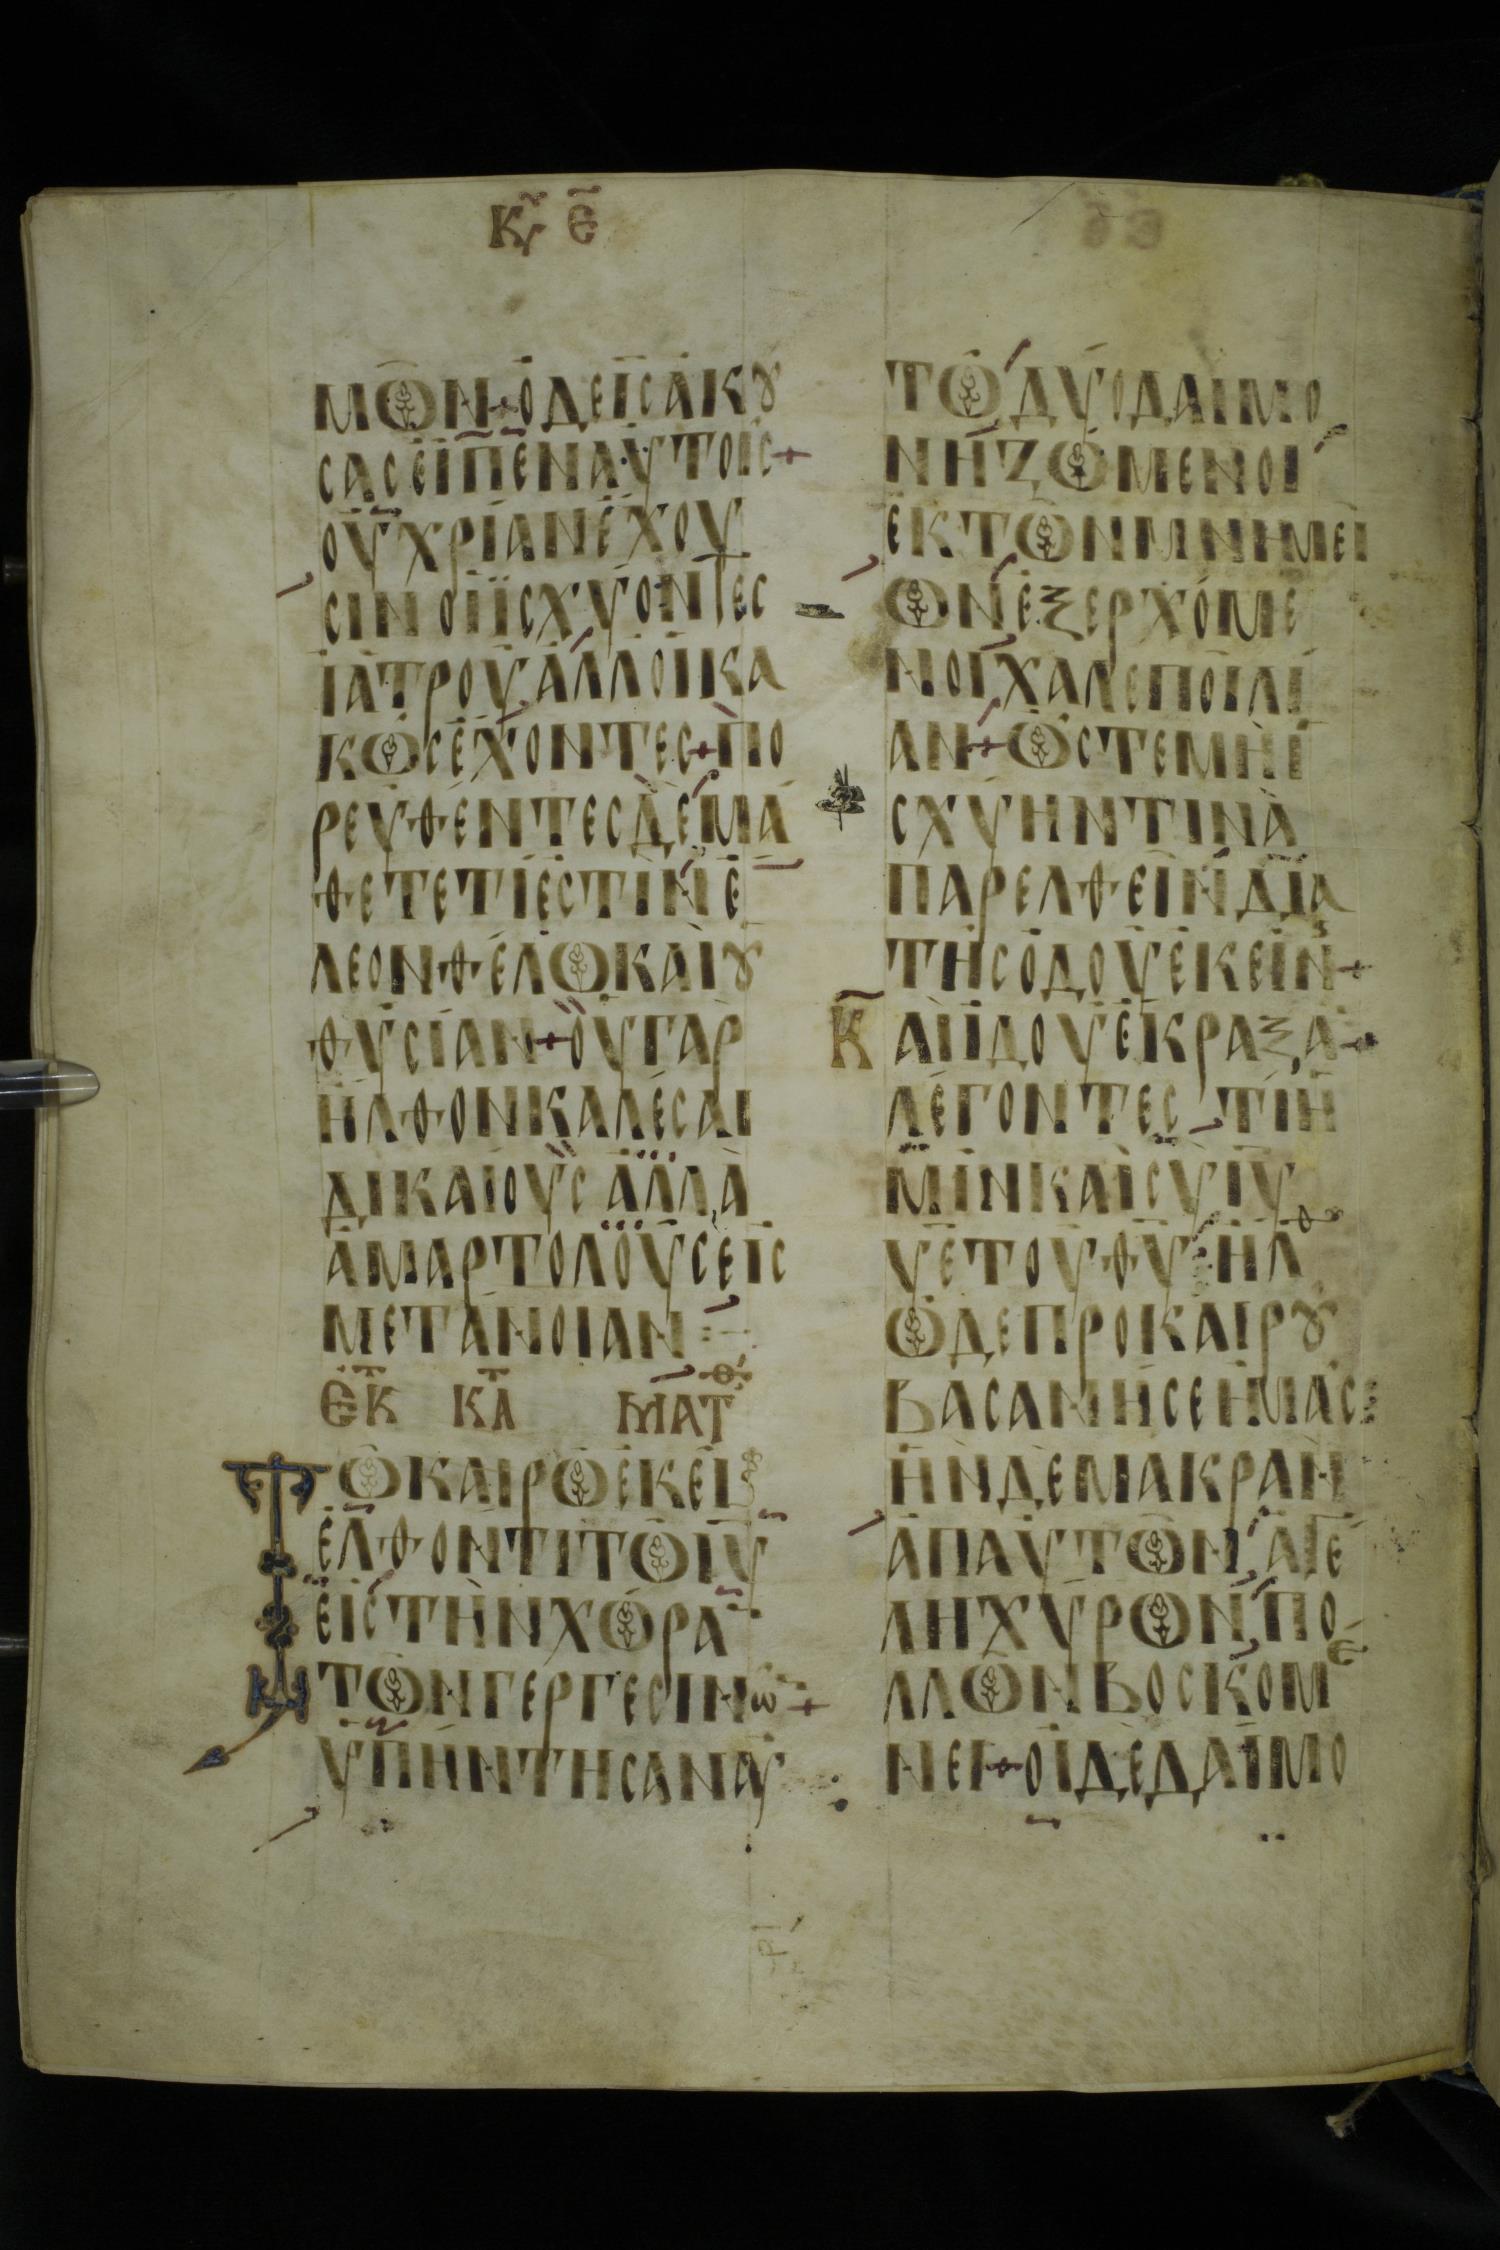 Κυρ Ε
ΜΩΝ+ΟΔΕΙΣΑΚΟΥ
ΣΑΣΕΙΠΕΝΑΥΤΟΙΣ+
ΟΥΧΡΙΑΝΕΧΟΥ
ΣΙΝΟΙΙΣΧΥΟΝΤΕΣ
ΙΑΤΡΟΥΑΛΛΟΙΚΑ
ΚΩΣΕΧΟΝΤΕΣ+ΠΟ
ΡΕΥΘΕΝΤΕΣΔΕΜΑ
ΘΕΤΕΤΙΕΣΤΙΝΕ
ΛΕΟΝΘΕΛΩΚΑΙΟΥ
ΘΥΣΙΑΝ+ΟΥΓΑΡ
ΗΛΘΟΝΚΑΛΕΣΑΙ
ΔΙΚΑΙΟΥΣΑΛΛΑ
ΑΜΑΡΤΟΛΟΥΣΕΙΣ
ΜΕΤΑΝΟΙΑΝ
ΕΚ Κ̅Λ ΜΑΤΘ
ΤΩΚΑΙΡΩΕΚΕΙ
ΕΛΘΟΝΤΙΤΩΙΥ
ΕΙΣΤΗΝΧΩΡΑ
ΤΩΝΓΕΡΓΕΣΙΝω+
ΥΠΗΝΤΗΣΑΝΑΥ
ΤΩΔΥΟΔΑΙΜΟ
ΝΗΖΩΜΕΝΟΙ
ΕΚΤΩΝΜΝΗΜΕΙ
ΩΝΕΞΕΡΧΟΜΕ
ΝΟΙΧΑΛΕΠΟΙΛΙ
ΑΝ+ΩΣΤΕΜΗΙ
ΣΧΥΗΝΤΙΝΑ
ΠΑΡΕΛΘΕΙΝΔΙΑ
ΤΗΣΟΔΟΥΕΚΕΙΝ+
ΚΑΙΙΔΟΥΕΚΡΑΞΑ
ΛΕΓΟΝΤΕΣ ΤΙΗ
ΜΙΝΚΑΙΣΥΙΥ
ΥΕΤΟΥΘΥΗΛΘ
ΩΔΕΠΡΟΚΑΙΡΟΥ
ΒΑΣΑΝΗΣΕΗΜΑΣ
ΗΝΔΕΜΑΚΡΑΝ
ΑΠΑΥΤΩΝΑΓΕ
ΛΗΧΥΡΩΝΠΟ
ΛΛΩΝΒΟΣΚΟΜΕ
ΝΕΙ+ΟΙΔΕΔΑΙΜΟ